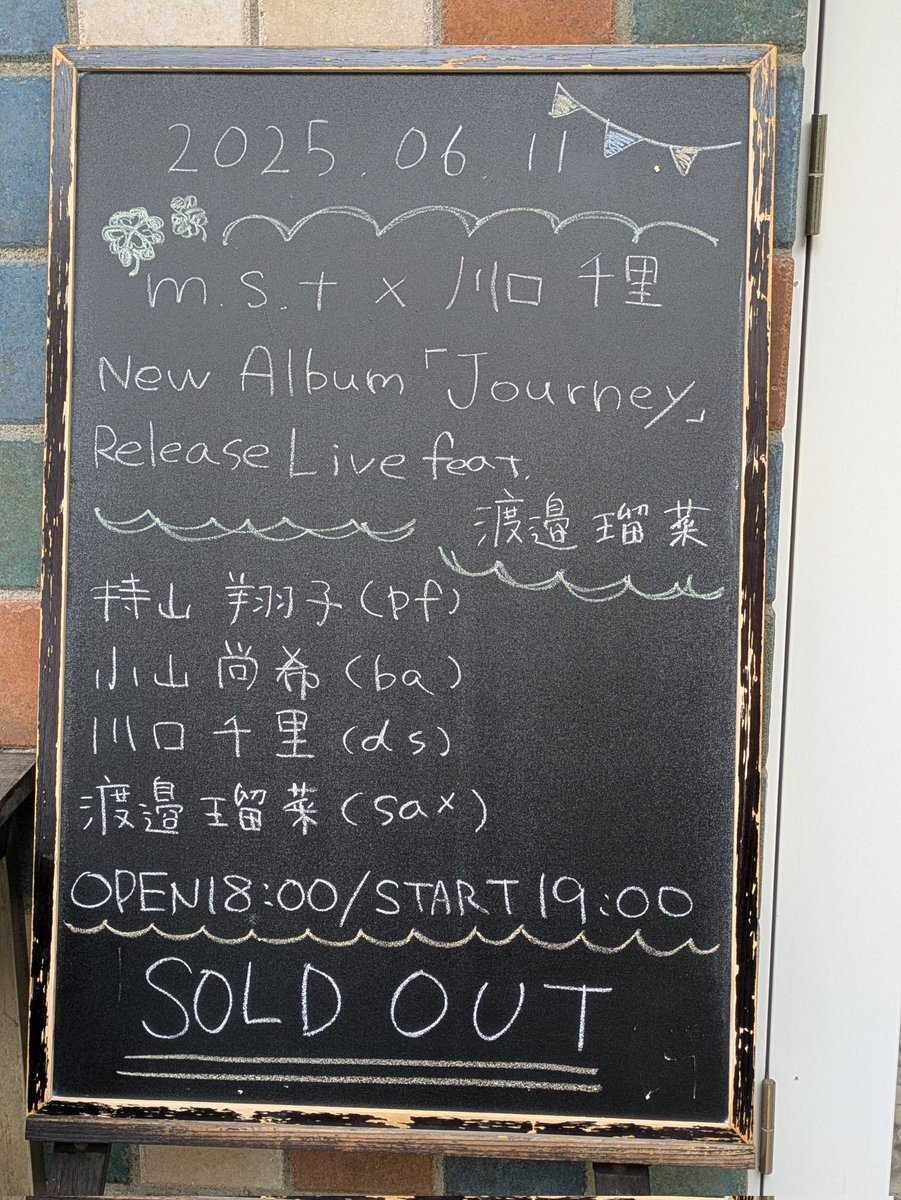 2025.06.11
m.s.t × 川口 千里
New Album「Journey」
Release Live feat.
渡邉 瑠菜
持山 翔子(pf)
小山 尚希(ba)
川口 千里(ds)
渡邉 瑠菜(sax)
OPEN18:00/START19:00
SOLD OUT